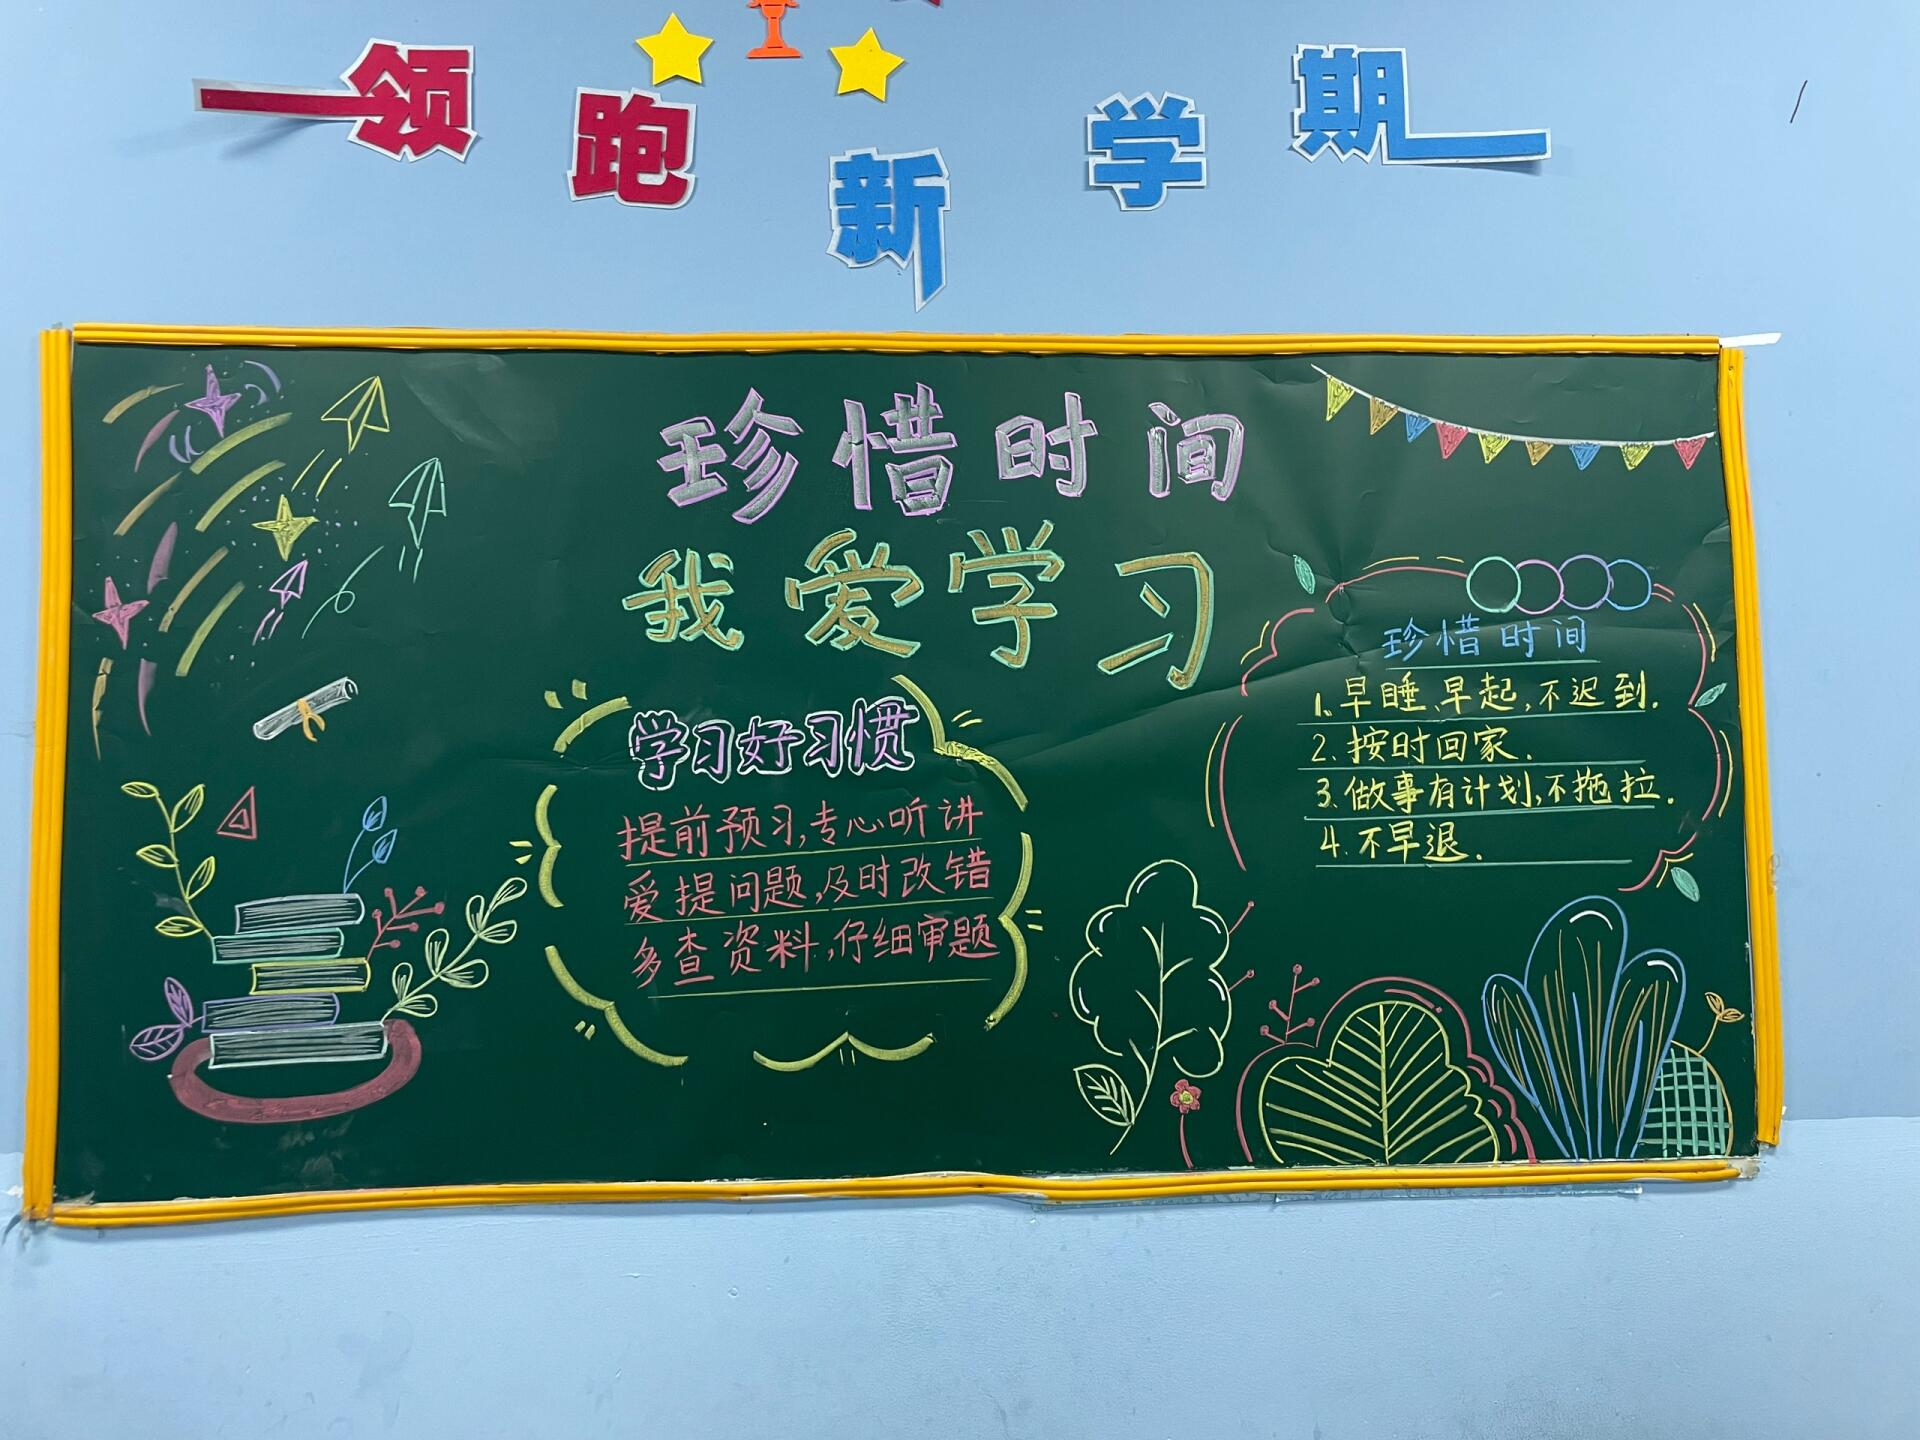 领跑新学期
珍惜时间
我爱学习
学习好习惯
提前预习,专心听讲
爱提问题,及时改错
多查资料,仔细审题
珍惜时间
1、早睡、早起,不迟到.
2.按时回家.
3.做事有计划,不拖拉.
4.不早退.